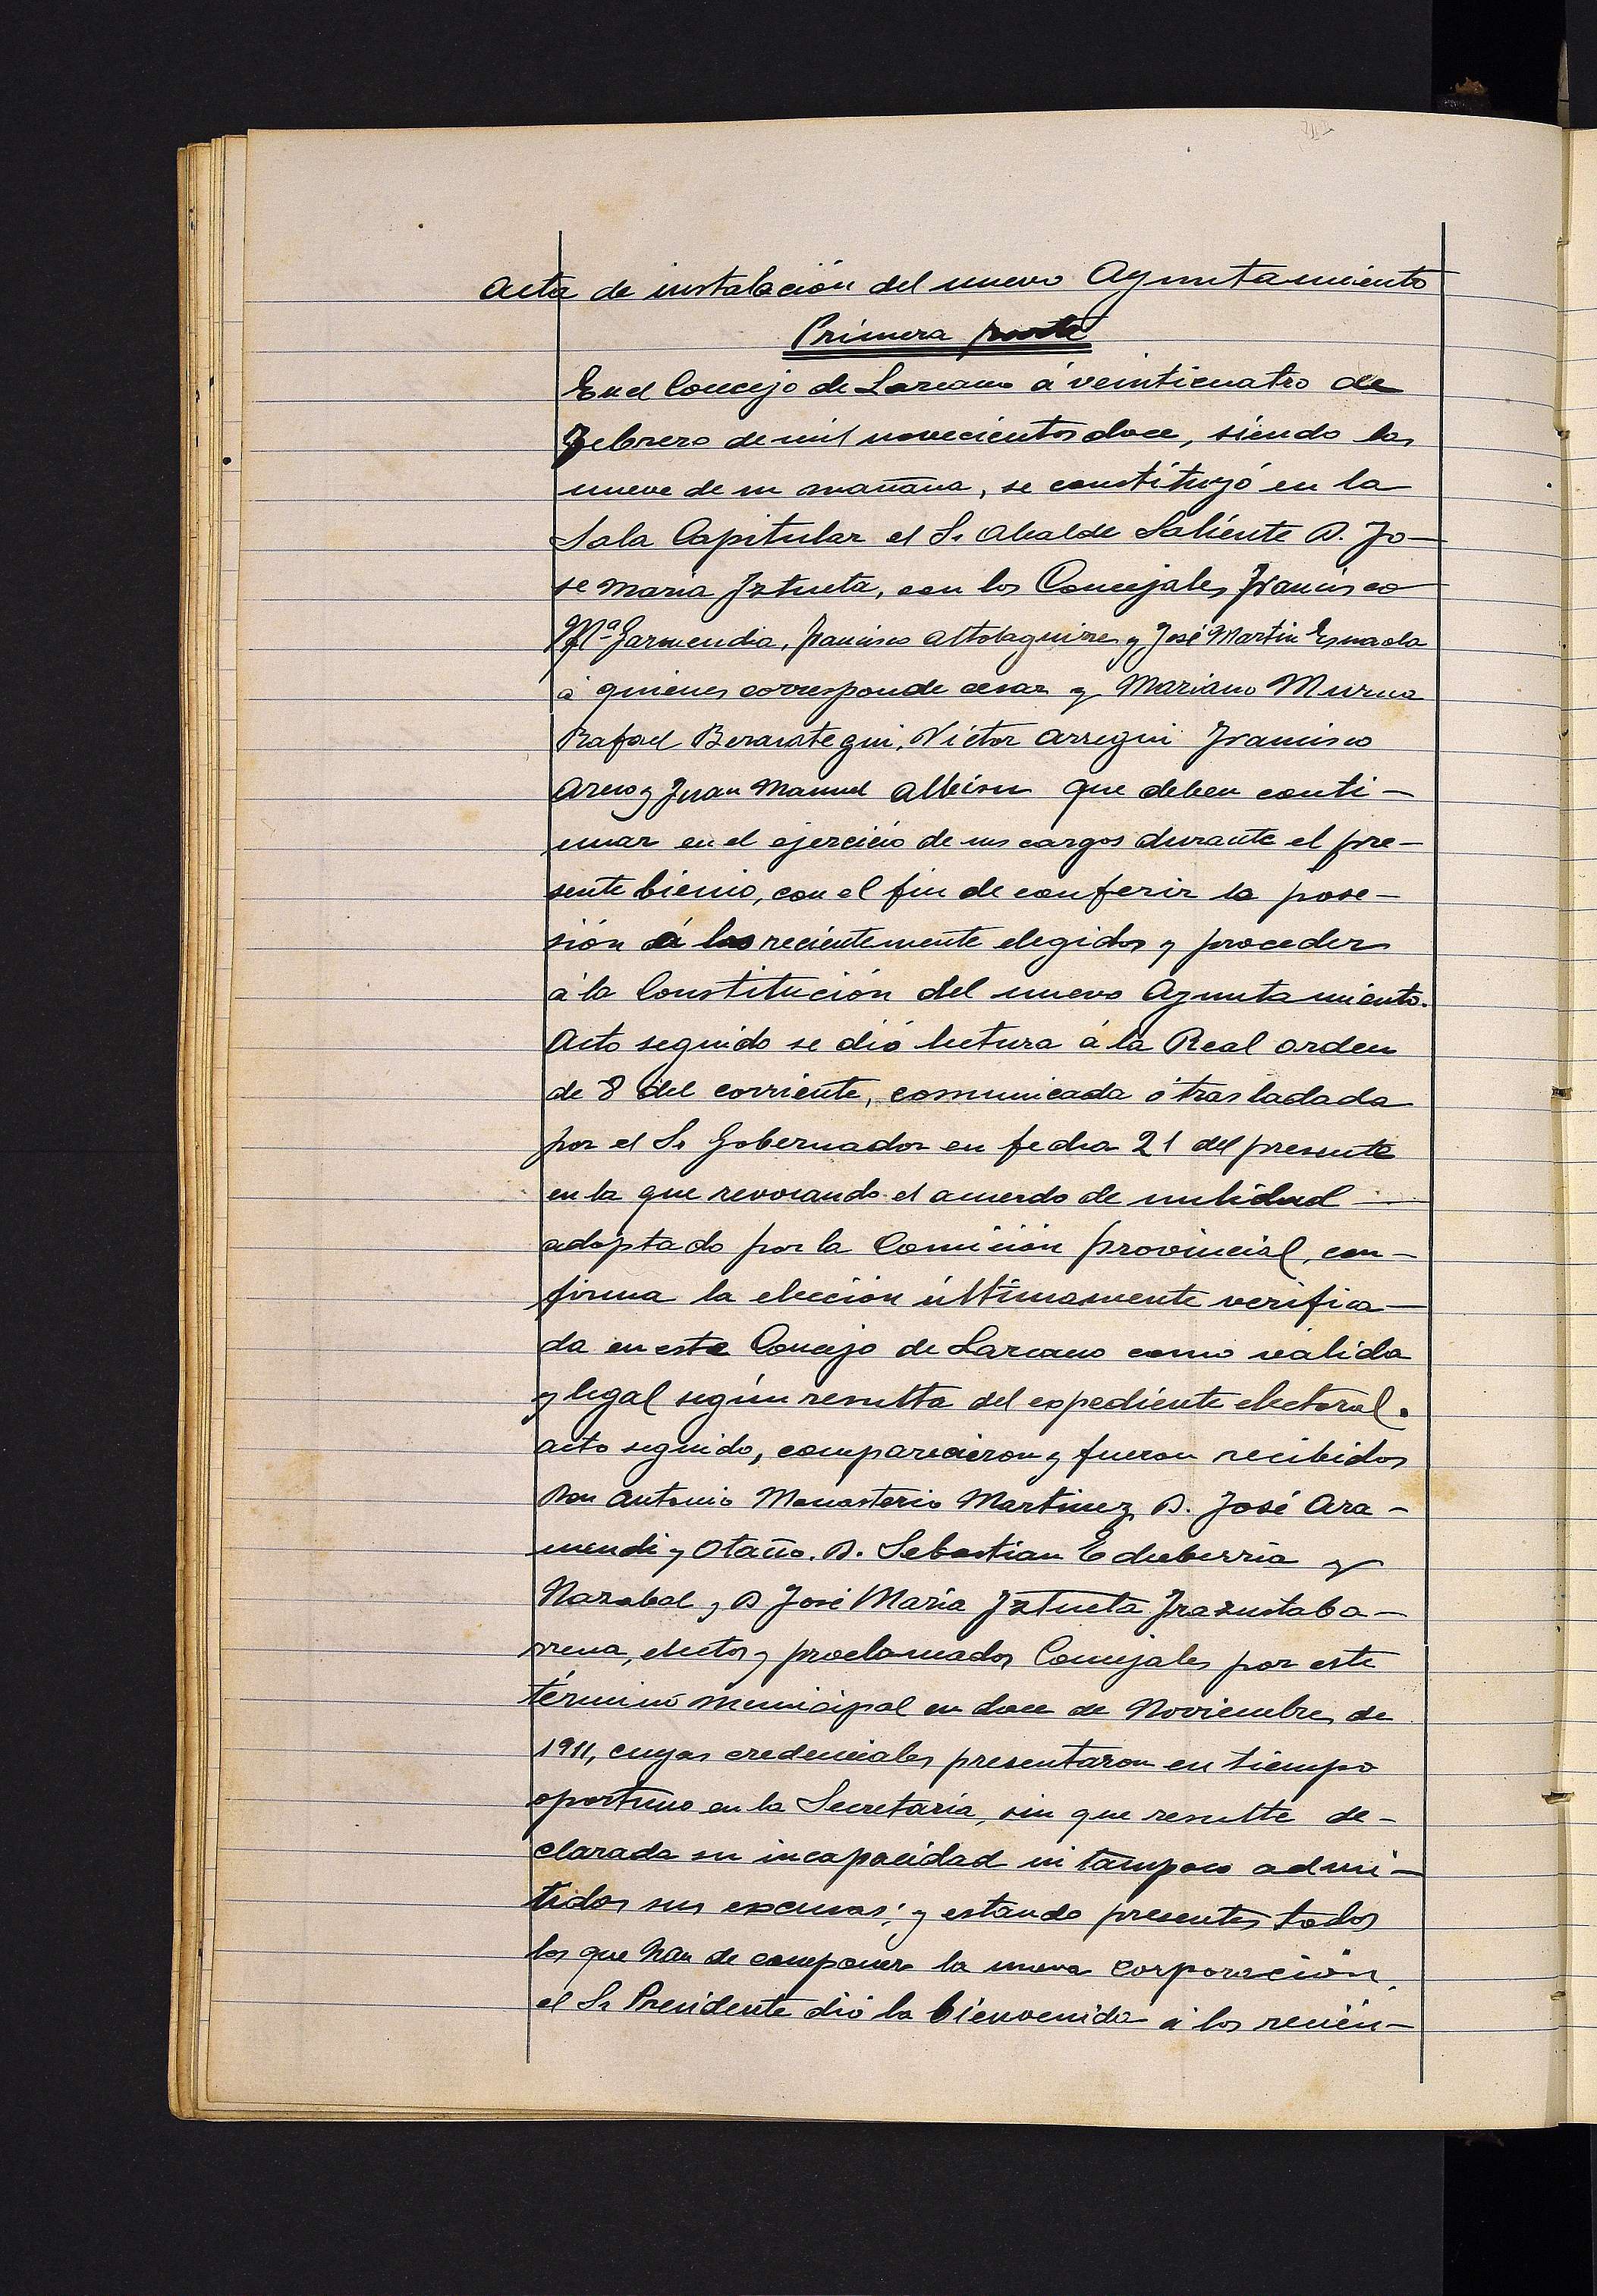 Acta de instalación del nuevo Ayuntamiento
Primera parte
En el Concejo de Lazcano á veinticuatro de
Febrero de mil novecientos doce, siendo las
nueve de su mañana, se constituyó en la
Sala Capitular el Sr Alcalde Saliente D. Jo-
se Maria Iztueta, con los Concejales Francisco
Mª Garmendia, Francisco Altolaguirre y José Martin Esnaola
á quienes corresponde cesar y Mariano Murua
Rafael Berasategui, Victor Arregui Francisco
y Juan Manuel Albisu que deben conti-
nuar en el ejercicio de sus cargos durante el pre-
sente bienio, con el fin de conferir la pose-
sión á los recientemente elegidos y proceder
á la Constitución del nuevo Ayuntamiento.
Acto seguido se dió lectura á la Real orden
de 8 del corriente, comunicada ó trasladada
por el Sr Gobernador en fecha 21 del presente
en la que revocando el acuerdo de nulidad
adoptado por la Comición provincial, con-
firma la elección últimamente verifica-
da en este Concejo de Lazcano como válida
y legal según resulta del expediente electoral.
Acto seguido, comparecieron y fueron recibidos
Don Antonio Monasterio Martinez, D. José Ara-
mendi y Otaño. D. Sebastian Echeberria y
Narabal y D José Maria Iztueta Irazustaba-
rrena, electos y proclamados Concejales por este
término municipal en doce de Noviembre de
1911, cuyas credenciales presentaron en tiempo
oportuno en la Secretaría, sin que resulte de-
clarada su incapacidad ni tampoco admi-
tidas sus excusas; y estando presentes todos
los que han de componer la nueva corporación,
el Sr Presidente dió la bienvenida á los recién-